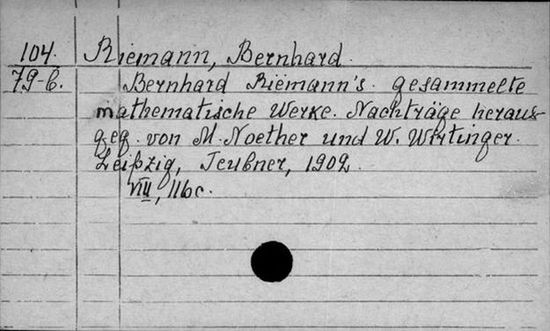 104. Riemann, Bernhard.
79-b. Bernhard Riemann's gesammelte
mathematische Werke. Nachträge heraus-
geg. von M. Noether und W. Wirtinger.
Leipzig, Teubner, 1902.
VIII, 116c.